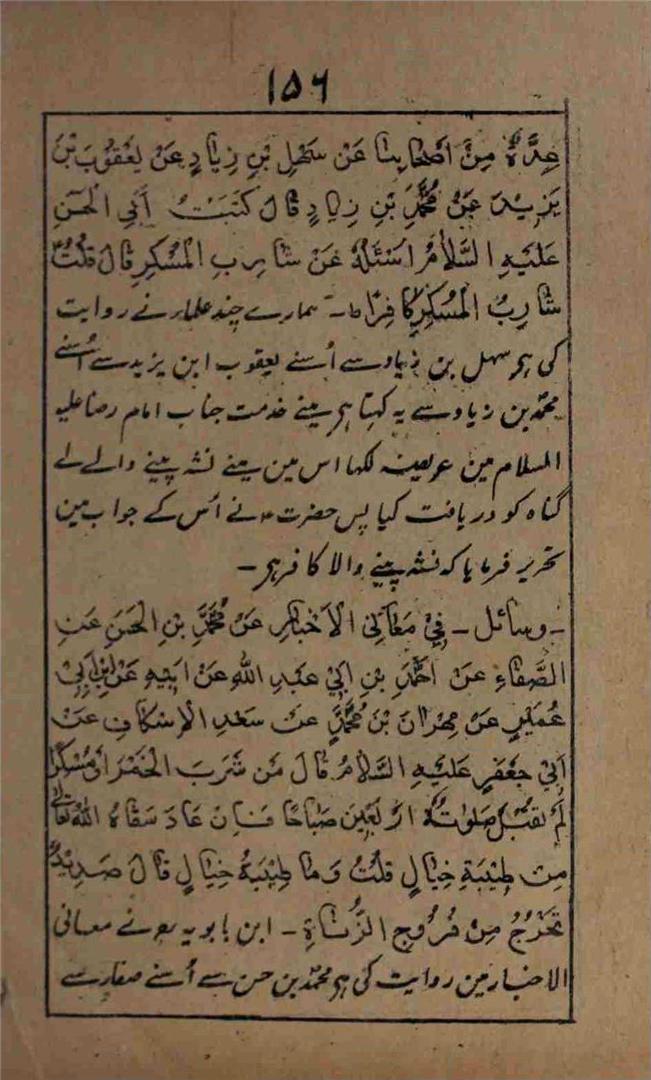 ۱۵۶
عِدَّةٌ مِنْ اَصْحَابِنَا عَنْ سَهْلِ بْنِ زِيَادٍ عَنْ يَعْقُوبَ بْنِ
يَزِيْدَ عَنْ مُحَمَّدِ بْنِ زِيَادٍ قَالَ كَتَبْتُ اَبِي الْحَسَنِ
عَلَيْهِ السَّلَامُ اَسْئَلُهُ عَنْ شَارِبِ الْمُسْكِرِ قَالَ قُلْتُ
شَارِبُ الْمُسْكِرِ كَافِرًا۔ ہمارے چند علماء نے روایت
کی ہے سہل بن زیاد سے اُسنے یعقوب ابن یزید سے اُسنے
محمّد بن زیاد سے یہ کہتا ہے مینے خدمت جناب امام رضا علیہ
السلام مین عریضہ لکہا اس مین مینے نشہ پینے والے لے
گناہ کو دریافت کیا پس حضرت ۴ نے اُس کے جواب مین
تحریر فرمایا کہ نشہ پینے والا کافر ہے ۔
۔ وسائل ۔ فِيْ مَعَانِي الْاَخْبَارِ عَنْ مُحَمَّدِ بْنِ الْحَسَنِ عَنِ
الصَّفَّاءِ عَنْ اَحْمَدِ بْنِ اَبِيْ عَبْدِ اللهِ عَنْ اَبِيْهِ عَنْ اِبْنِ اَبِيْ
عُمَيْرٍ عَنْ مِهْرَانَ بْنِ مُحَمَّدٍ عَنْ سَعْدِ الْاِسْكَافِ عَنْ
اَبِيْ جَعْفَرٍ عَلَيْهِ السَّلَامُ قَالَ مَنْ شَرِبَ الْخَمْرَ اَوْ مُسْكِرًا
لَمْ تُقْبَلْ صَلٰوتُهُ اَرْبَعِيْنَ صَبَاحًا فَاِنْ عَادَ سَقَاهُ اللهُ تَعَالٰى
مِنْ طِيْنَةِ خِبَالٍ قُلْتُ وَمَا طِيْنَةُ خِبَالٍ قَالَ صَدِيْدٌ
تَخْرُجُ مِنْ فُرُوْجِ الزُّنَاةِ ۔ ابن بابویہ نے معانی
الاخبار مین روایت کی ہے محمّد بن حسن سے اُسنے صفار سے